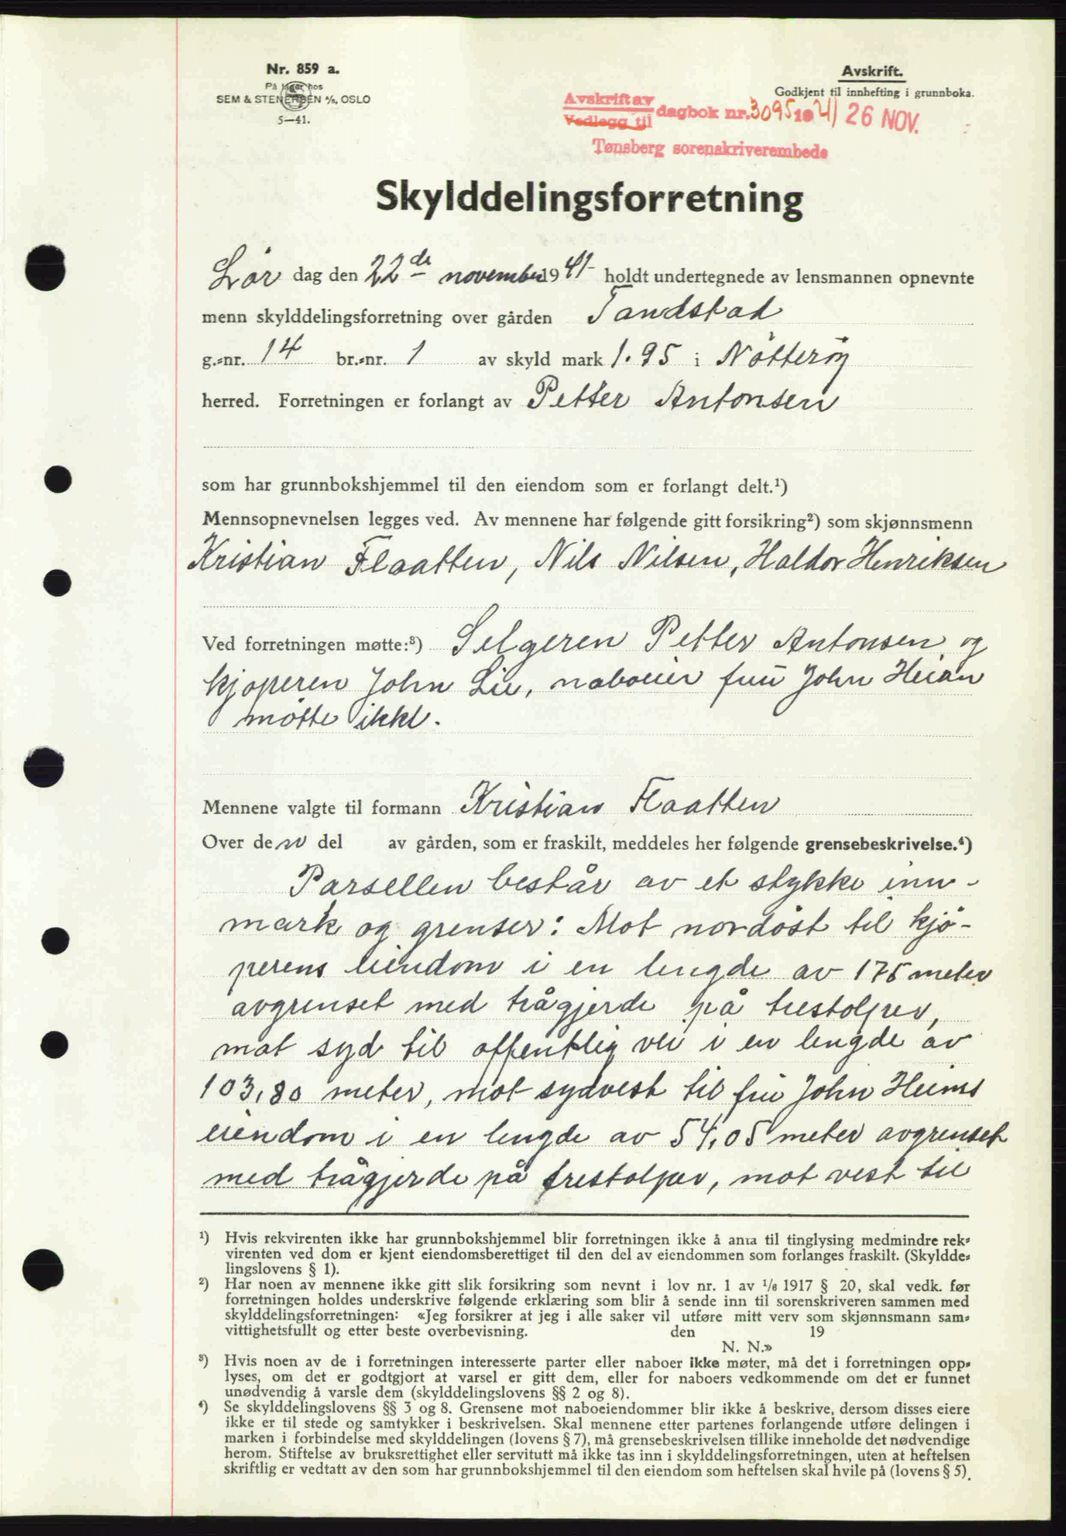 Nr. 859 a.
På lager hos
SEM & STENERSEN A/S, OSLO
5—41.
Avskrift.
Godkjent til innhefting i grunnboka.
Avskrift av
Vedlegg til
dagbok nr. 3095 1941 26 NOV.
Tønsberg sorenskriverembede
Skylddelingsforretning
Lör dag den 22de november 1941 holdt undertegnede av lensmannen opnevnte
menn skylddelingsforretning over gården Tandstad
g.-nr. 14 br.-nr. 1 av skyld mark 1.95 i Nötteröy
herred. Forretningen er forlangt av Petter Antonsen
som har grunnbokshjemmel til den eiendom som er forlangt delt.¹)
Mennsopnevnelsen legges ved. Av mennene har følgende gitt forsikring²) som skjønnsmenn
Kristian Flaatten, Nils Nilsen, Haldor Henriksen
Ved forretningen møtte:³) Selgeren Petter Antonsen og
kjöperen John Lie, naboeier fru John Heian
mötte ikke.
Mennene valgte til formann Kristian Flaatten
Over den del av gården, som er fraskilt, meddeles her følgende grensebeskrivelse.⁴)
Parsellen består av et stykke inn-
mark og grenser: Mot nordöst til kjö-
perens eiendom i en lengde av 175 meter
avgrenset med trågjerde på trestolper,
mot syd til offentlig vei i en lengde av
103,80 meter, mot sydvest til fru John Heians
eiendom i en lengde av 54,05 meter avgrenset
med trågjerde på trestolper, mot vest til
¹) Hvis rekvirenten ikke har grunnbokshjemmel blir forretningen ikke å anta til tinglysing medmindre rek-
virenten ved dom er kjent eiendomsberettiget til den del av eiendommen som forlanges fraskilt. (Skyldde-
lingslovens § 1).
²) Har noen av mennene ikke gitt slik forsikring som nevnt i lov nr. 1 av 1/6 1917 § 20, skal vedk. før
forretningen holdes underskrive følgende erklæring som blir å sende inn til sorenskriveren sammen med
skylddelingsforretningen: «Jeg forsikrer at jeg i alle saker vil utføre mitt verv som skjønnsmann sam-
vittighetsfullt og etter beste overbevisning. den 19
N. N.»
³) Hvis noen av de i forretningen interesserte parter eller naboer ikke møter, må det i forretningen opp-
lyses, om det er godtgjort at varsel er gitt dem, eller for naboers vedkommende om det er funnet
unødvendig å varsle dem (skylddelingslovens §§ 2 og 8).
⁴) Se skylddelingslovens §§ 3 og 8. Grensene mot naboeiendommer blir ikke å beskrive, dersom disses eiere
ikke er til stede og samtykker i beskrivelsen. Skal mennene etter partenes forlangende utføre delingen i
marken i forbindelse med skylddelingen (lovens § 7), må grensebeskrivelsen tillike inneholde det nødvendige
herom. Stiftelse av bruksrettighet eller servitutt må ikke tas inn i skylddelingsforretningen, uten at heftelsen
skriftlig er vedtatt av den som har grunnbokshjemmel til den eiendom som heftelsen skal hvile på (lovens § 5).